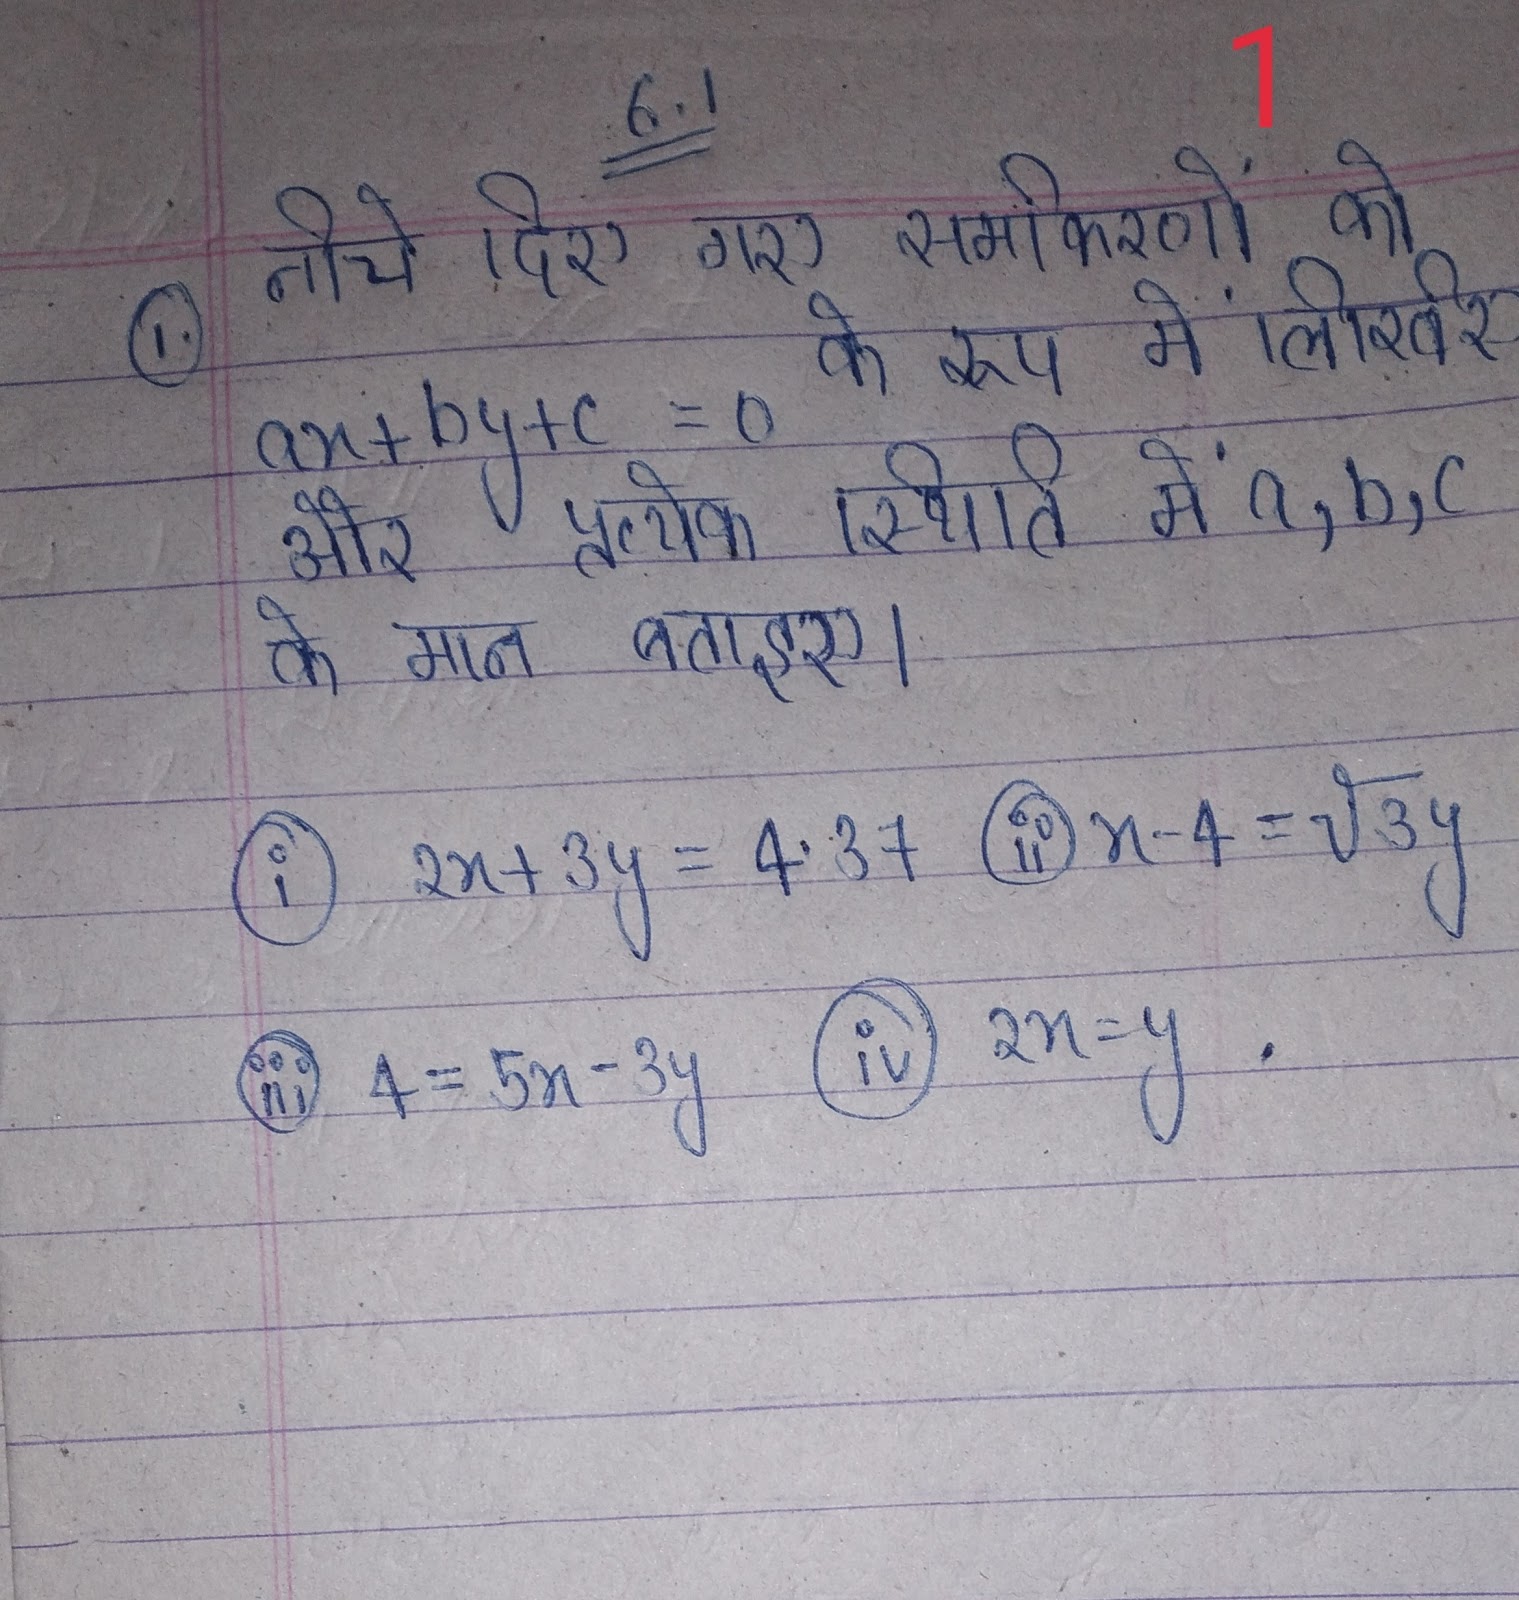 1
6.1
1. नीचे दिए गए समीकरणों को
ax+by+c = 0 के रूप में लिखिए
और प्रत्येक स्थिति में a, b, c
के मान बताइए।
i 2x+3y = 4.37 ii x-4 = √3y
iii 4 = 5x-3y iv 2x = y .